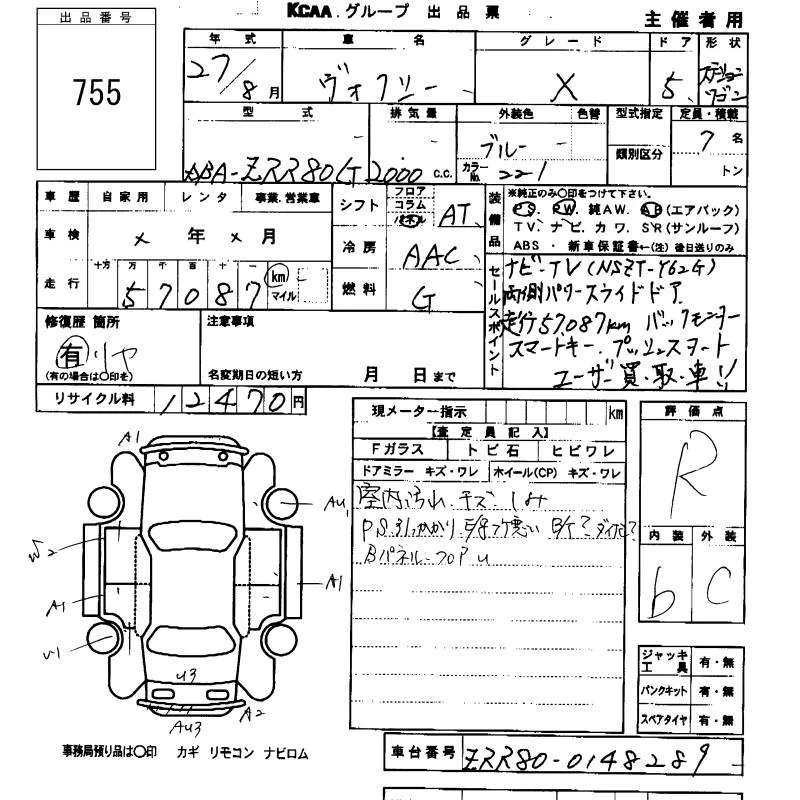 KCAA グループ 出品票
主催者用
出品番号
755
年式 車名 グレード ドア 形状
27/8月 ヴォクシー X 5 ステーションワゴン
型式 排気量 外装色 色替 型式指定 定員・積載
類別区分
ABA-ZRR80G 2000 C.C. ブルー カラーNo. 221 7名
トン
車歴 自家用 レンタ 事業.営業車
車検 × 年 × 月
走行 十万 万 千 百 十 一
57087 km マイル
シフト フロア コラム パネル AT
冷房 AAC
燃料 G
装備品 ※純正のみ〇印をつけて下さい。
PS. PW. 純AW. AB(エアバック)
TV. ナビ. カワ. SR(サンルーフ)
ABS ・ 新車保証書←(注) 後日送りのみ
セールスポイント
ナビ・TV (NSZT-Y62G)
両側パワースライドドア
走行57,087km バックモニター
スマートキー. プッシュスタート
ユーザー買.取.車!!
修復歴 箇所
有
(有の場合は〇印を)
注意事項
名変期日の短い方 月 日まで
リサイクル料 12470円
現メーター指示 km
【査定員記入】
Fガラス トビ石 ヒビワレ
ドアミラー キズ・ワレ ホイール(CP) キズ・ワレ
室内汚れ キズ シミ
Bパネル フロア U
評価点
R
内装 外装
b C
A1
AU1
W2
A1
A1
U1
U3
A2
AU3
ジャッキ工具 有・無
パンクキット 有・無
スペアタイヤ 有・無
事務局預り品は〇印 カギ リモコン ナビロム
車台番号 ZRR80-0148289